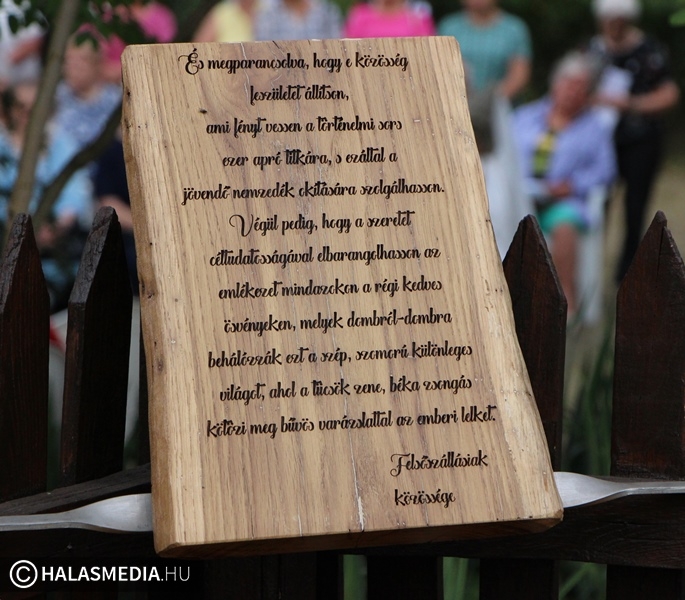 És megparancsolva, hogy e közösség
feszületet állítson,
ami fényt vessen a történelmi sors
ezer apró titkára, s ezáltal a
jövendő nemzedék okítására szolgálhasson.
Végül pedig, hogy a szeretet
céltudatosságával elbarangolhasson az
emlékezet mindazokon a régi kedves
ösvényeken, melyek dombról-dombra
behálózzák ezt a szép, szomorú különleges
világot, ahol a tücsök zene, béka zsongás
kötözi meg bűvös varázslattal az emberi lelket.
Felsőszállásiak
közössége
© HALASMEDIA.HU